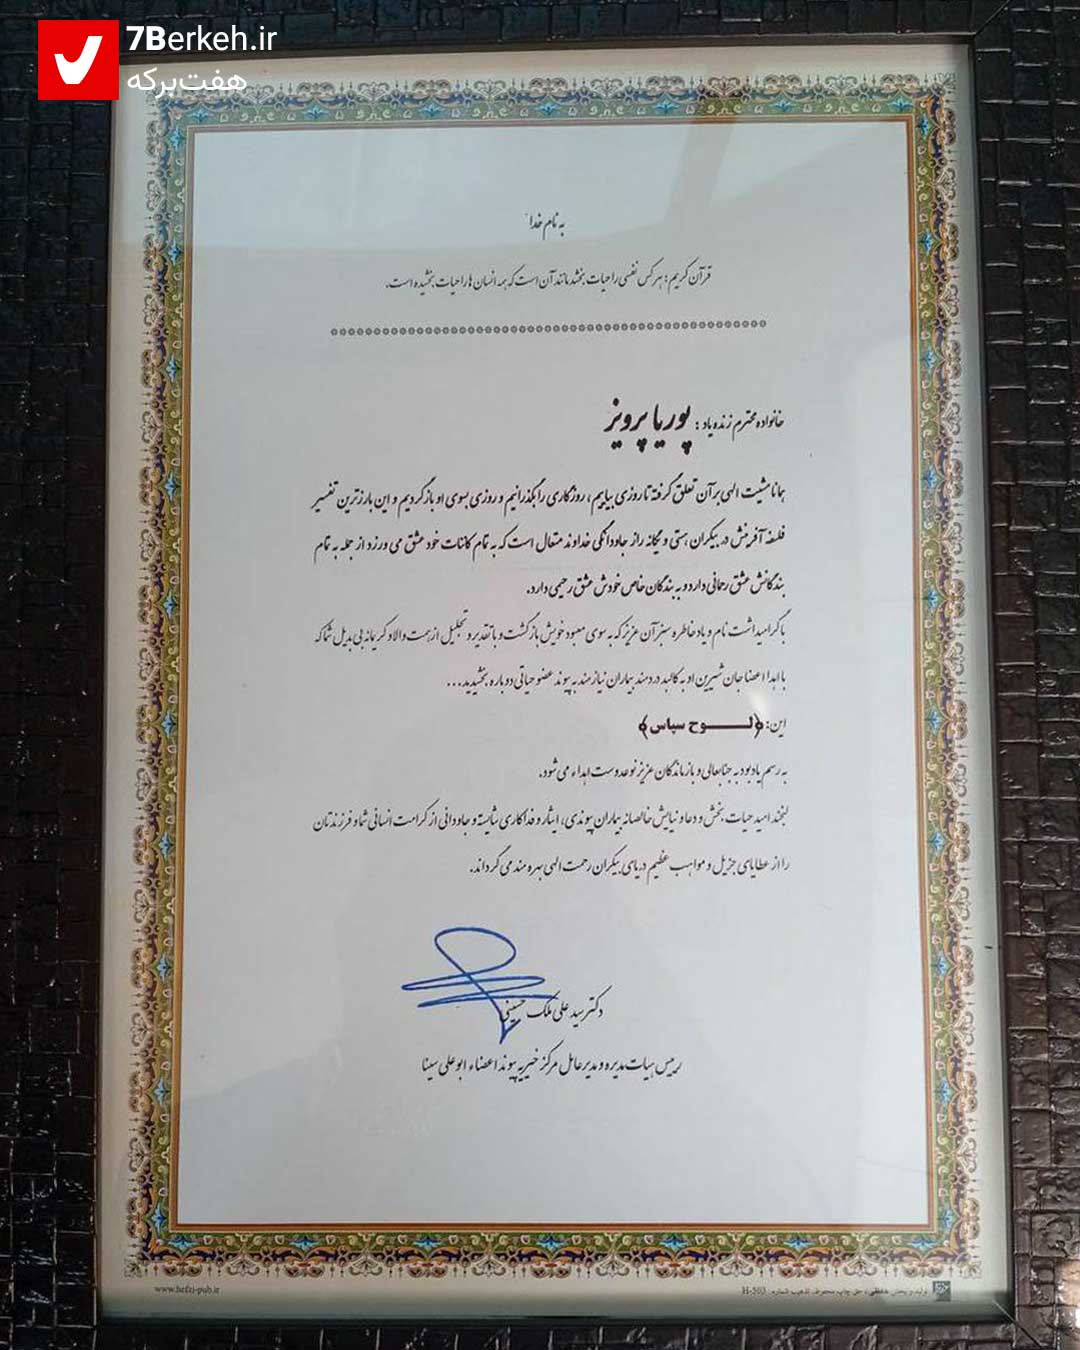 7Berkeh.ir
هفت‌برکه
به نام خدا
قرآن کریم: هرکس نفسی را حیات بخشد مانند آن است که همه انسان ها را حیات بخشیده است.
خانواده محترم زنده یاد: پوریا پرویز
همانا مشیت الهی بر آن تعلق گرفته تا روزی بیاییم، روزگاری را بگذرانیم و روزی بسوی او بازگردیم و این بارزترین تفسیر
فلسفه آفرینش در بیکران هستی و یگانه راز جاودانگی خداوند متعال است که به تمام کائنات خود عشق می ورزد از جمله به تمام
بندگانش عشق رحمانی دارد و به بندگان خاص خودش عشق رحیمی دارد.
با گرامیداشت نام و یاد خاطره سبز آن عزیز که به سوی معبود خویش بازگشت و با تقدیر و تجلیل از همت والا و کریمانه بی بدیل شما که
با اهدا اعضا جان شیرین او به کالبد دردمند بیماران نیازمند به پیوند عضو حیاتی دوباره بخشیدید...
این: ﴿لوح سپاس﴾
به رسم یادبود به جنابعالی و بازماندگان عزیز نوعدوست اهداء می شود.
لبخند امید حیات بخش و دعا و نیایش خالصانه بیماران پیوندی، ایثار و فداکاری شایسته و جاودانی از کرامت انسانی شما و فرزندتان
را از عطایای جزیل و مواهب عظیم دریای بیکران رحمت الهی بهره مند می گرداند.
دکتر سید علی ملک حسینی
رییس هیات مدیره و مدیرعامل مرکز خیریه پیوند اعضاء ابوعلی سینا
www.hefzi-pub.ir
تولید و پخش حافظی، حق چاپ محفوظ. تذهیب شماره H-503